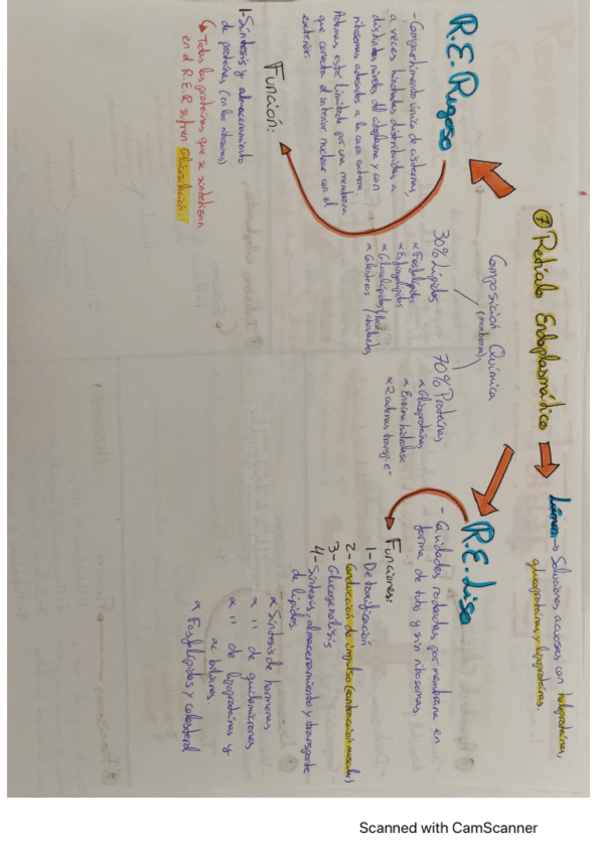 ⑦ Retículo Endoplasmático
Lúmen → Soluciones acuosas con holoproteínas,
glucoproteínas y lipoproteínas.
Composición Química
(membrana)
30% Lípidos
∝ Fosfolípidos
∝ Esfingolípidos
70% Proteínas
∝ Glicoproteínas
∝ Enzima hidrolasa
∝ 2 cadenas transp. e-
R.E. Rugoso
- Compartimento único de cisternas,
a veces hinchadas distribuidas a
distintos niveles del citoplasma y con
ribosomas adosados a la cara externa.
Además esta limitado por una membrana
que conecta el exterior nuclear con el
exterior.
Función:
1- Síntesis y almacenamiento
de proteínas (en los ribosomas)
↳ Todas las proteínas que se sintetizan
en el R.E.R sufren Glicosilación.
R.E. Liso
- Cavidades rodeadas por membrana en
forma de tubo y sin ribosomas.
Funciones:
1- Detoxificación
2- Conducción de impulso (contracción muscular)
3- Glucogenolisis
4- Síntesis, almacenamiento y transporte
de lípidos.
∝ Síntesis de hormonas
∝ " de quilomicrones
∝ " de lipoproteínas y
ac biliares.
∝ Fosfolípidos y colesterol
Scanned with CamScanner